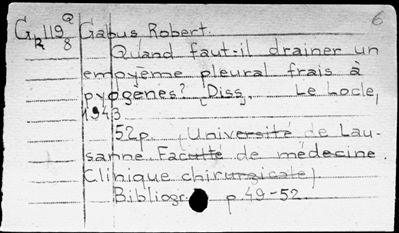 6
G 119 Gabus Robert.
Quand faut-il drainer un
empyème pleural frais à
pyogènes? [Diss. Le Locle,
1943
52p. (Université de Lau-
sanne. Faculté de médecine.
Clinique chirurgicale)
Bibliogr. p 49-52.